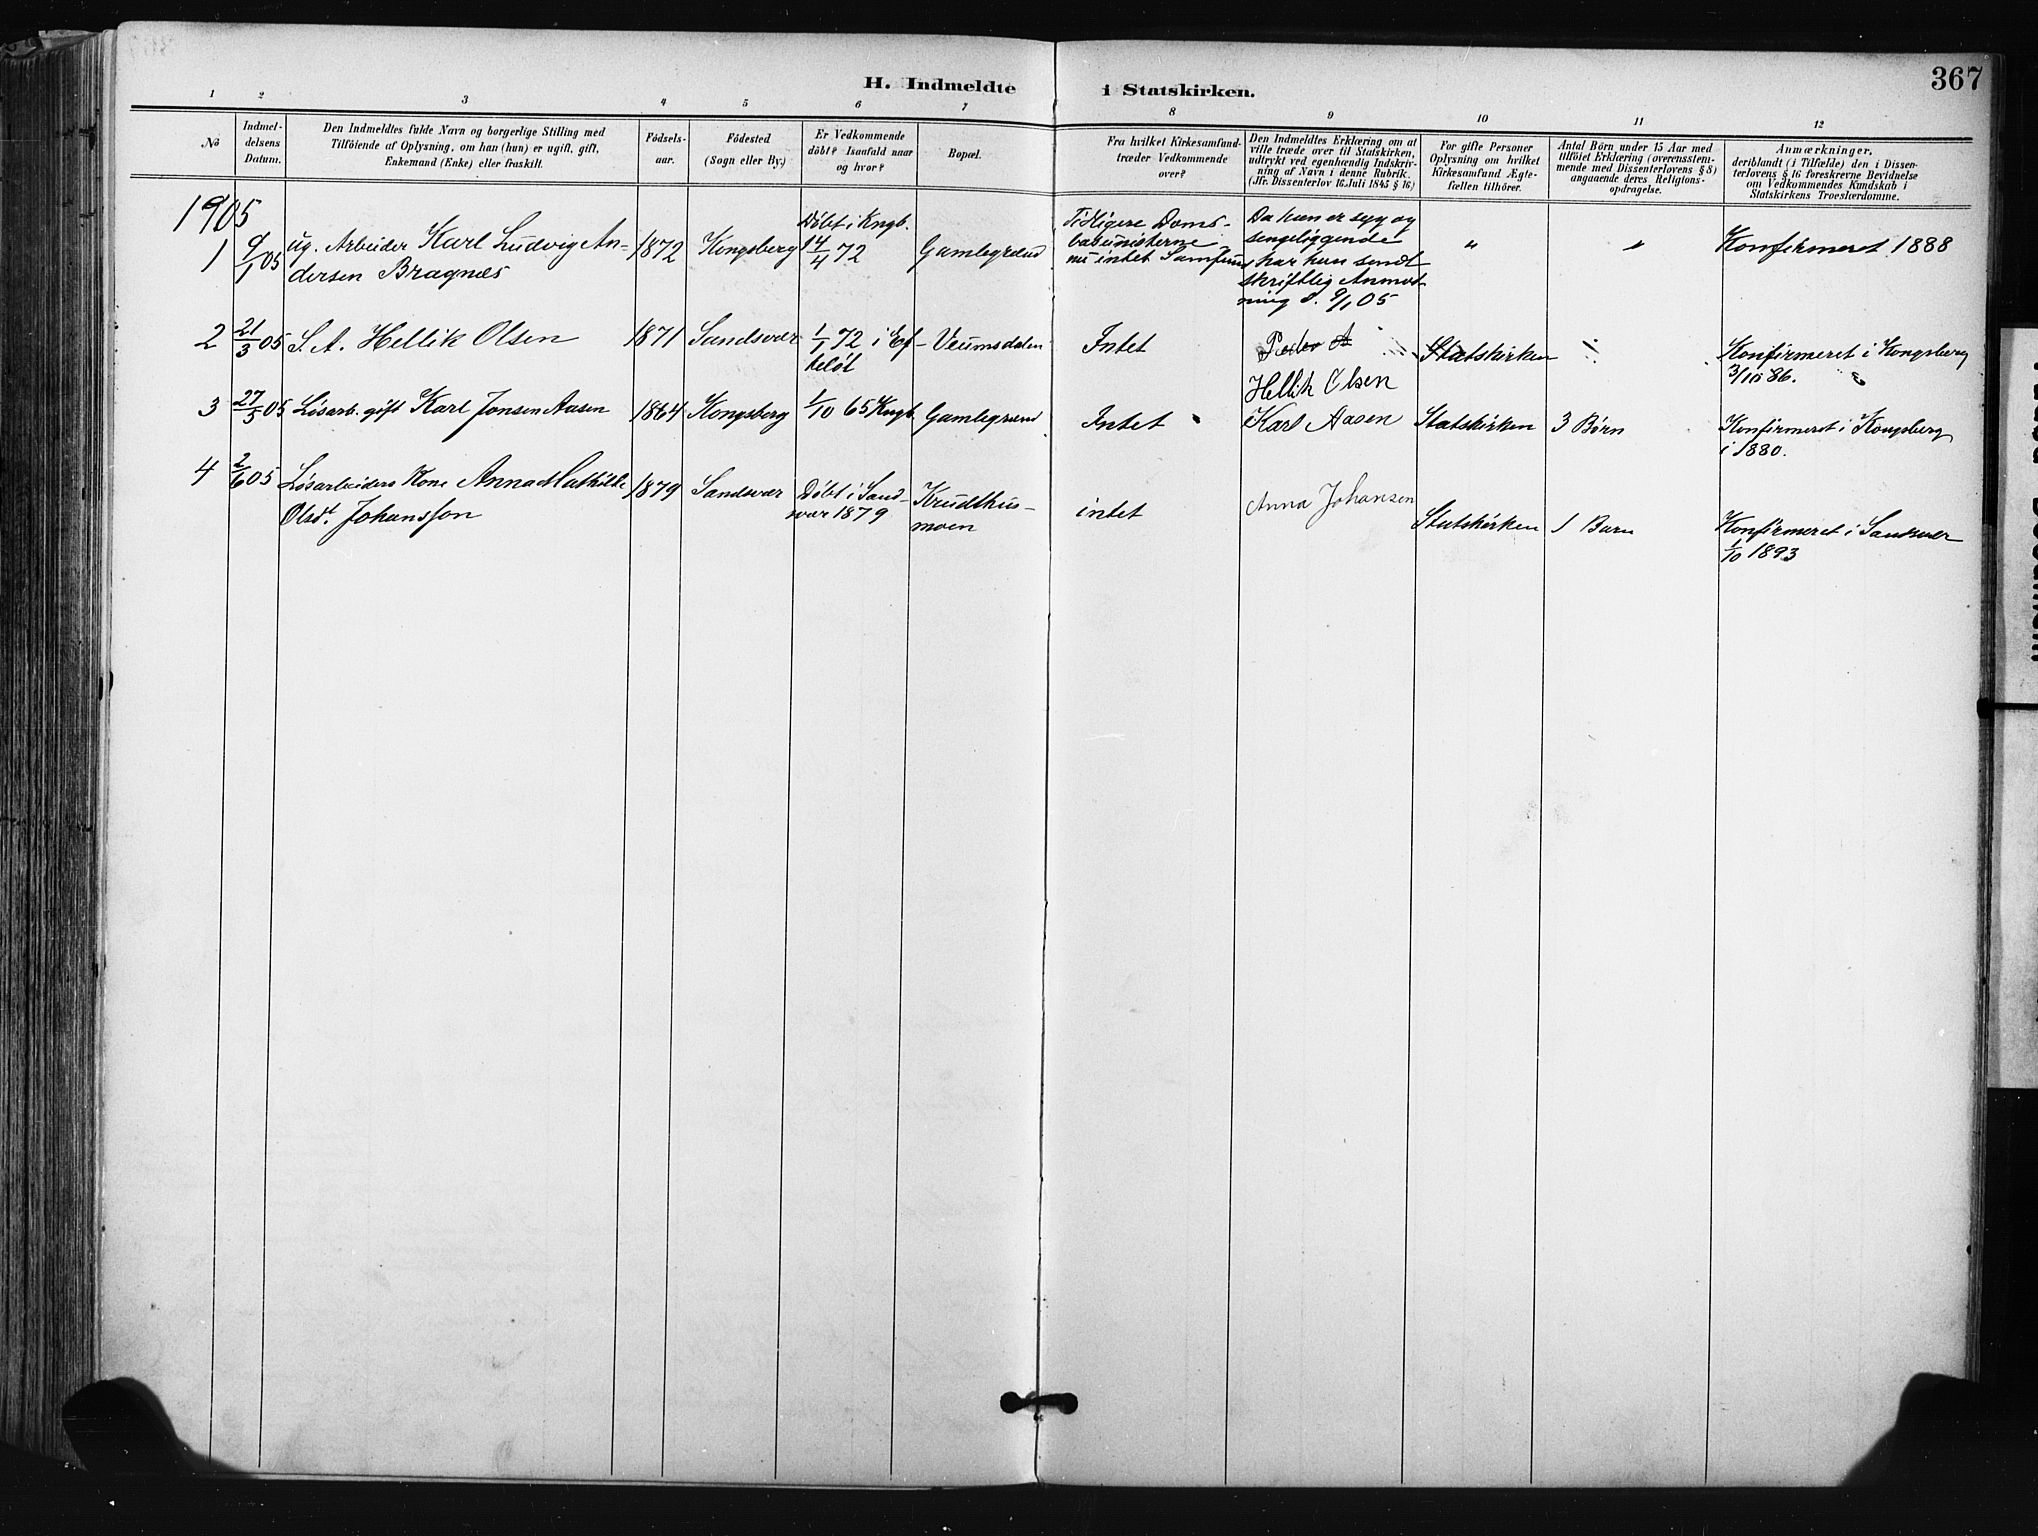 367
H. Indmeldte i Statskirken.
1 2 3 4 5 6 7 8 9 10 11 12
No
Indmel-
delsens
Datum.
Den Indmeldtes fulde Navn og borgerlige Stilling med
Tilföiende af Oplysning, om han (hun) er ugift, gift,
Enkemand (Enke) eller fraskilt.
Födsels-
aar.
Födested
(Sogn eller By.)
Er Vedkommende
döbt? Isaafald naar
og hvor?
Bopæl.
Fra hvilket Kirkesamfund
træder Vedkommende
over?
Den Indmeldtes Erklæring om at
ville træde over til Statskirken,
udtrykt ved egenhændig Indskriv-
ning af Navn i denne Rubrik.
(Jfr. Dissenterlov 16. Juli 1845 § 16)
For gifte Personer
Oplysning om hvilket
Kirkesamfund Ægte-
fællen tilhörer.
Antal Börn under 15 Aar med
tilföiet Erklæring (overensstem-
mende med Dissenterlovens § 8)
angaaende deres Religions-
opdragelse.
Anmærkninger,
deriblandt (i Tilfælde) den i Dissen-
terlovens § 16 foreskrevne Bevidnelse
om Vedkommendes Kundskab i
Statskirkens Troeslærdomme.
1905
1
9/1 05
ug. Arbeider Karl Ludvig An-
dersen Bragnæs
1872
Kongsberg
Döbt i Kngb.
14/4 72
Gamlegrænd
Tidligere Doms-
basunisterne
nu intet Samfund
Da han er syg og
sengeliggende
har han sendt
skriftlig Anmod-
ning d. 9/1 05
"
"
Konfirmeret 1888
2
21/3 05
S. A. Hellik Olsen
1871
Sandsvær
1/1 72 i Ef-
teløt
Veumsdalen
Intet
Peder A
Hellik Olsen
Statskirken
Konfirmeret i Kongsberg
3/10 86.
3
27/5 05
Løsarb. gift Karl Jonsen Aasen
1864
Kongsberg
1/10 65 Kngb.
Gamlegrænd
Intet
Karl Aasen
Statskirken
3 Børn
Konfirmeret i Kongsberg
i 1880.
4
2/6 05
Løsarbeiders Kone Anna Mathilde
Olsdt. Johansson
1879
Sandsvær
Döbt i Sand-
svær 1879
Krudthus-
moen
intet
Anna Johansen
Statskirken
1 Barn
Konfirmeret i Sandsvær
1/10 1893